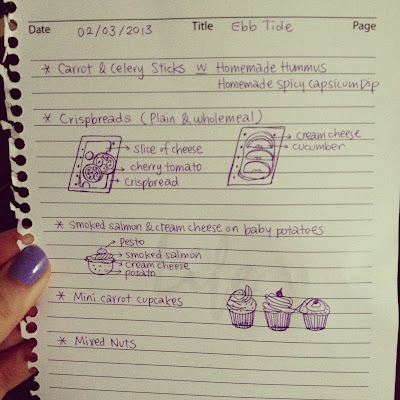 Date 02/03/2013 Title Ebb Tide Page
* Carrot & Celery Sticks w Homemade Hummus
Homemade Spicy Capsicum Dip
* Crispbreads (Plain & wholemeal)
slice of cheese
cherry tomato
crispbread
cream cheese
cucumber
* Smoked salmon & cream cheese on baby potatoes
pesto
smoked salmon
cream cheese
potato
* Mini carrot cupcakes
* Mixed Nuts